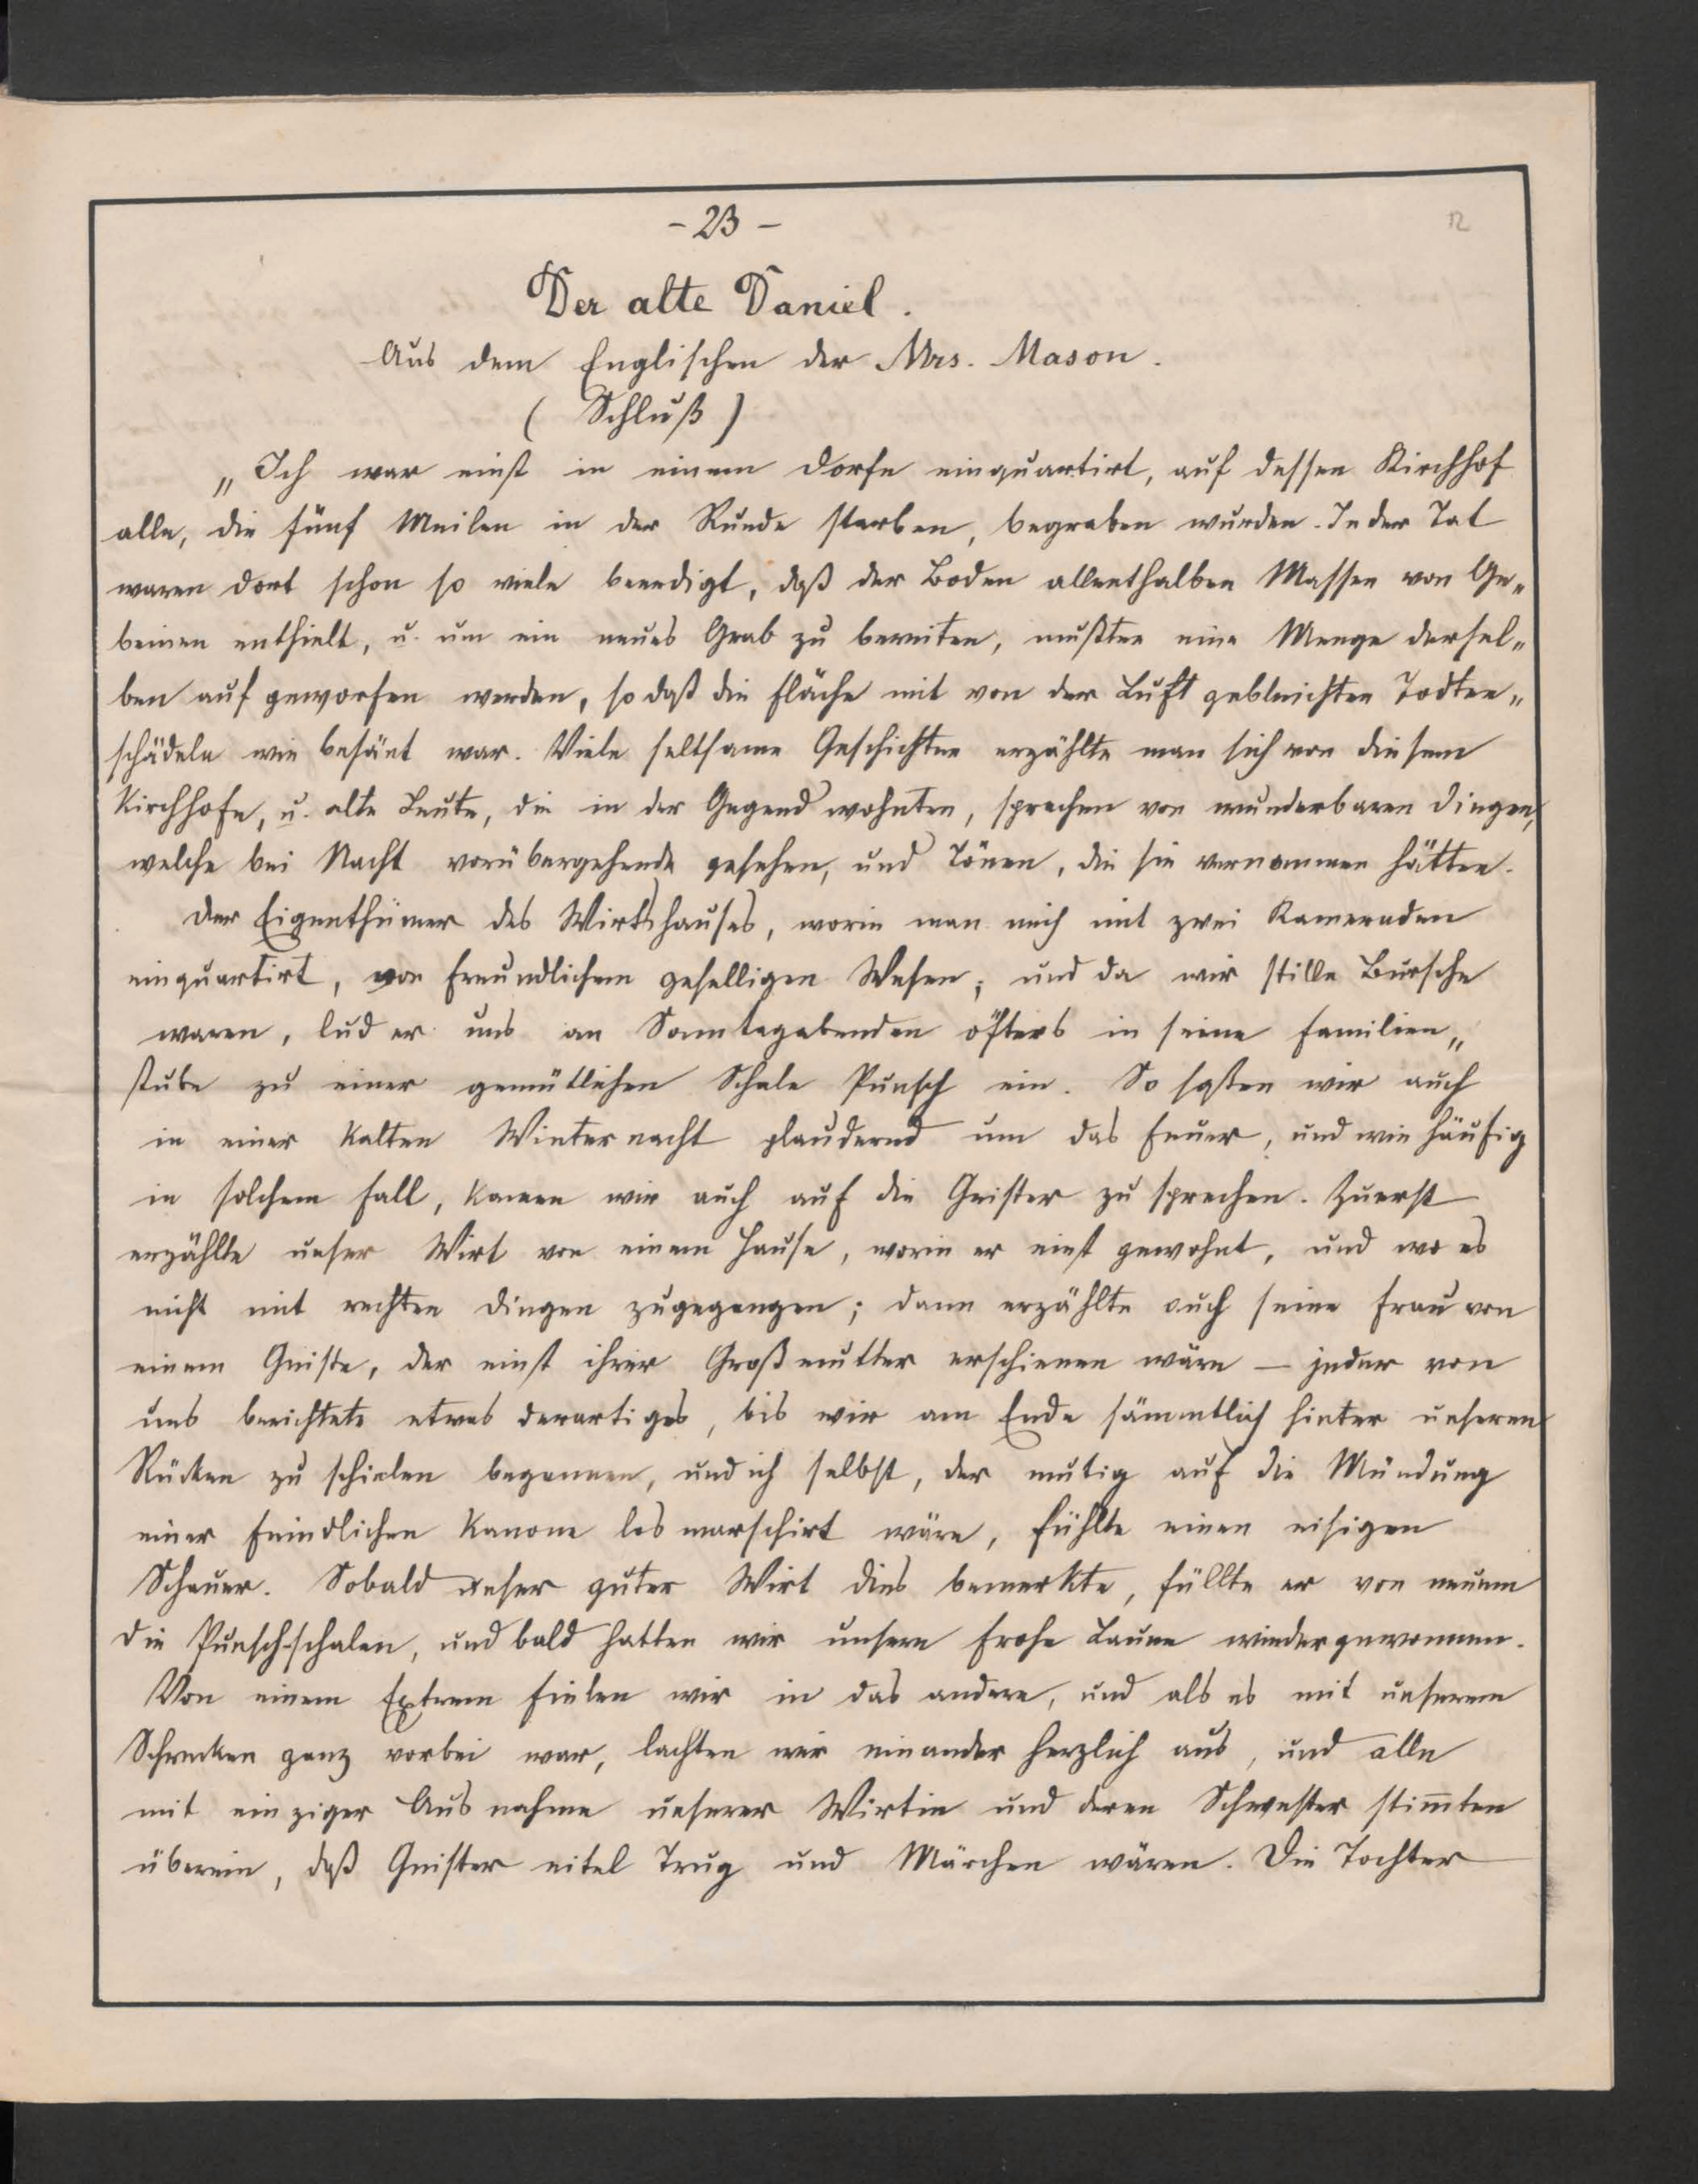 - 23 -
12
Der alte Daniel.
Aus dem Englischen der Mrs. Mason.
( Schluß )
„Ich war einst in einem Dorfe einquartirt, auf dessen Kirchhof
alle, die fünf Meilen in der Runde starben, begraben wurden. In der Tat
waren dort schon so viele beerdigt, daß der Boden allenthalben Massen von Ge„
beinen enthielt, u. um ein neues Grab zu bereiten, mußten eine Menge dersel„
ben auf geworfen werden, so daß die Fläche mit von der Luft gebleichten Todten„
schädeln wie besäet war. Viele seltsame Geschichten erzählte man sich von diesem
Kirchhofe, u. alte Leute, die in der Gegend wohnten, sprachen von wunderbaren Dingen,
welche bei Nacht vorübergehende gesehen, und Tönen, die sie vernommen hätten.
Der Eigenthümer des Wirtshauses, worin man mich mit zwei Kameraden
einquartirt, von freundlichem geselligen Wesen; und da wir stille Bursche
waren, lud er uns an Sonntagabenden öfters in seine Familien„
stube zu einer gemütlichen Schale Punsch ein. So saßen wir auch
in einer kalten Winternacht plaudernd um das Feuer, und wie häufig
in solchem Fall, kamen wir auch auf die Geister zu sprechen. Zuerst
erzählte unser Wirt von einem Hause, worin er einst gewohnt, und wo es
nicht mit rechten Dingen zugegangen; dann erzählte auch seine Frau von
einem Geiste, der einst ihrer Großmutter erschienen wäre — jeder von
uns berichtete etwas derartiges, bis wir am Ende sämmtlich hinter unseren
Rücken zu schielen begannen, und ich selbst, der mutig auf die Mündung
einer feindlichen Kanone los marschirt wäre, fühlte einen eisigen
Schauer. Sobald unser guter Wirt dies bemerkte, füllte er von neuem
die Punsch-schalen, und bald hatten wir unsere frohe Laune wiedergewonnen.
Von einem Extrem fielen wir in das andere, und als es mit unserem
Schrecken ganz vorbei war, lachten wir einander herzlich aus, und alle
mit einziger Ausnahme unserer Wirtin und deren Schwester stimten
überein, daß Geister eitel Trug und Märchen wären. Die Tochter